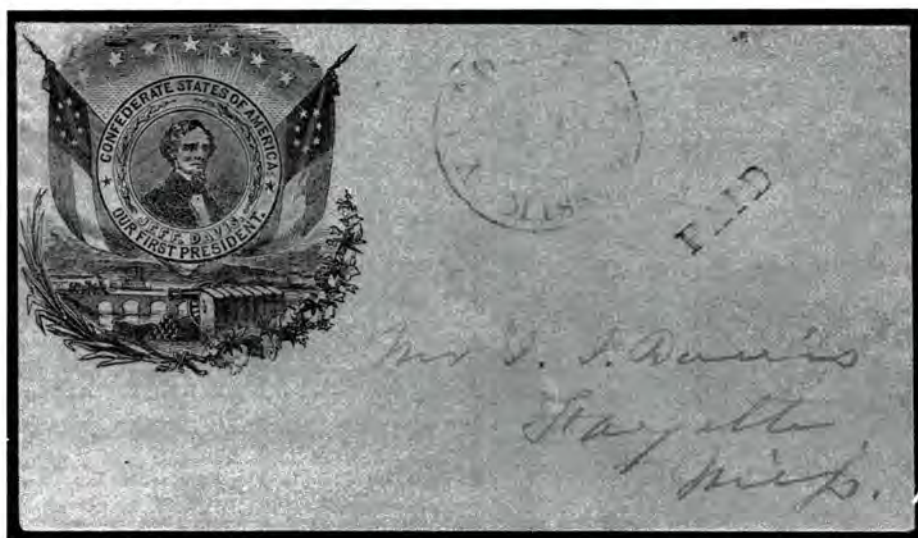 CONFEDERATE STATES OF AMERICA
JEFF. DAVIS.
OUR FIRST PRESIDENT.
PAID
Mr
Davis
Fayette
Miss.